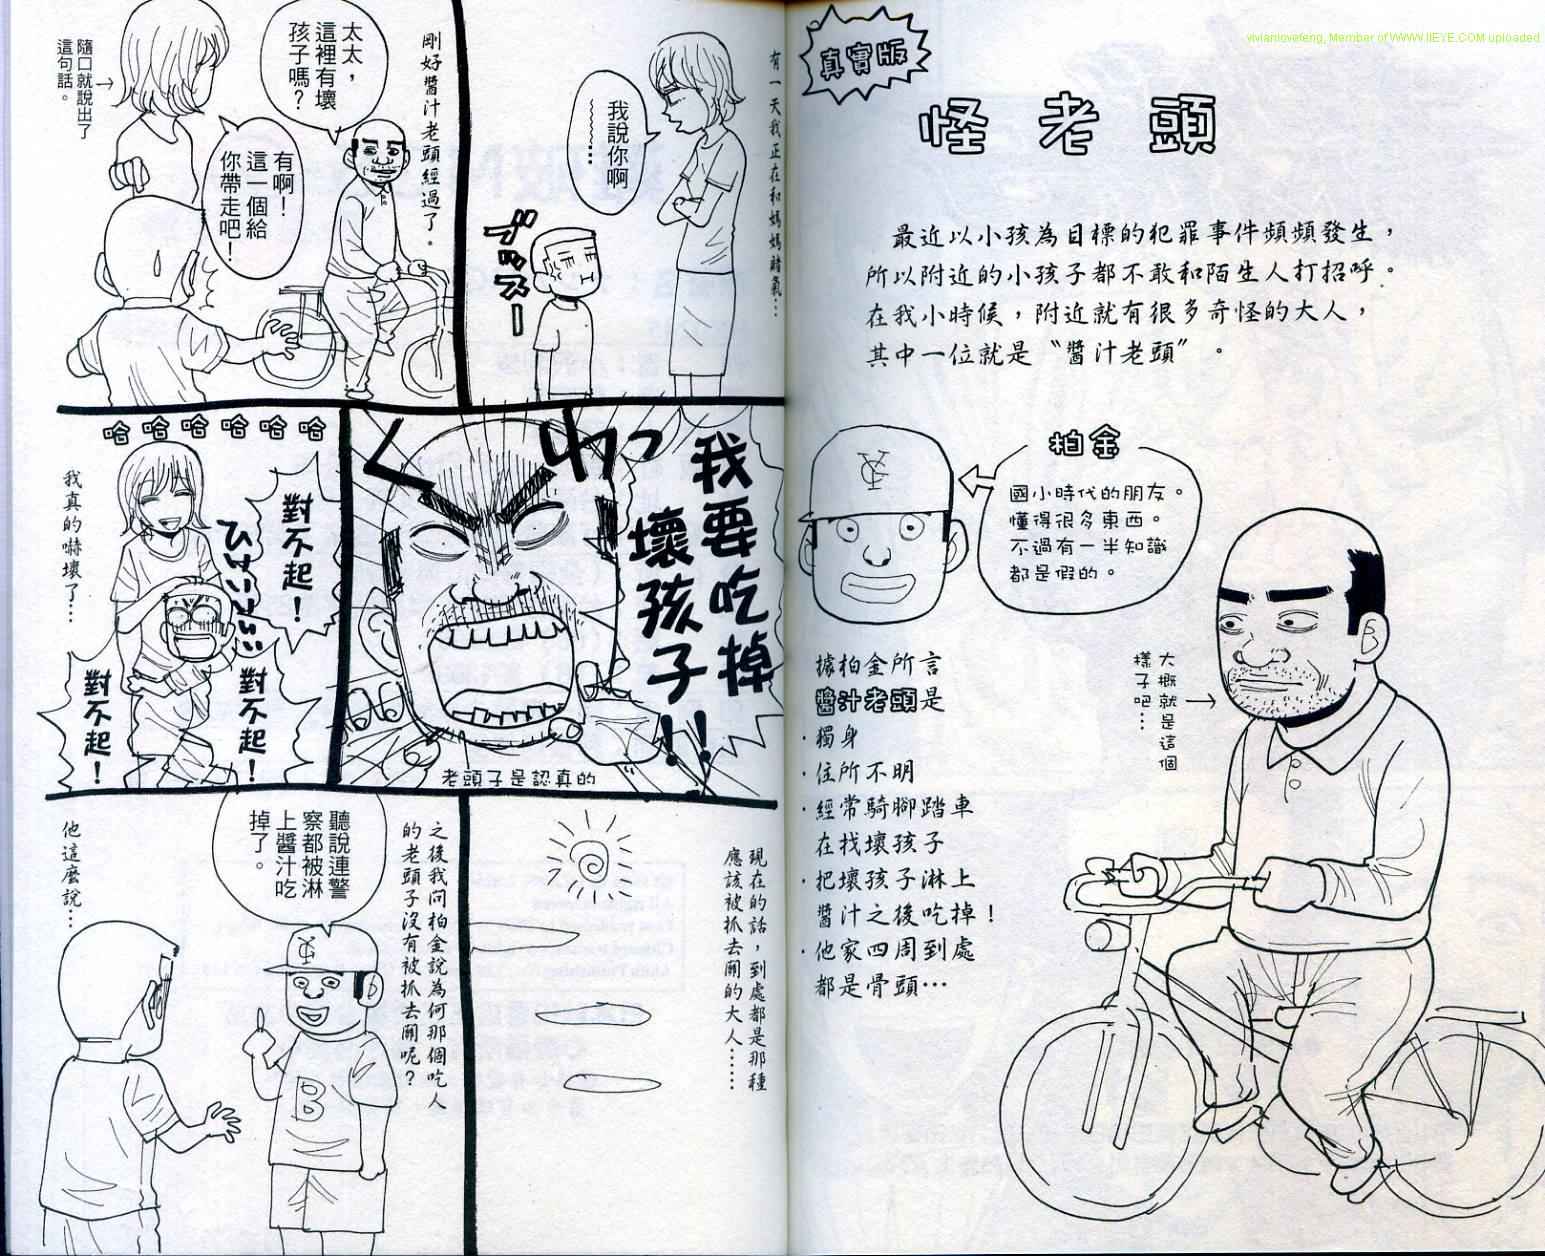 vivianlovefeng, Member of WWW.IIEYE.COM uploaded.
真實版
怪老頭
最近以小孩為目標的犯罪事件頻頻發生，
所以附近的小孩子都不敢和陌生人打招呼。
在我小時候，附近就有很多奇怪的大人，
其中一位就是〝醬汁老頭〞。
柏金
國小時代的朋友。
懂得很多東西。
不過有一半知識
都是假的。
大概就是這個
樣子吧…
據柏金所言
醬汁老頭是
·獨身
·住所不明
·經常騎腳踏車
在找壞孩子
·把壞孩子淋上
醬汁之後吃掉！
·他家四周到處
都是骨頭…
有一天我正在和媽媽賭氣…
我說你啊
……
ブッスー
剛好醬汁老頭經過了。
太太，
這裡有壞
孩子嗎？
有啊！
這一個給
你帶走吧！
隨口就說出了
這句話。
我要吃掉
壞孩子!!
老頭子是認真的
哈哈哈哈哈哈
對不起！
ひいいいい
對不起！
對不起！
我真的嚇壞了…
現在的話，到處都是那種
應該被抓去關的大人……
之後我問柏金說為何那個吃人
的老頭子沒有被抓去關呢？
聽說連警
察都被淋
上醬汁吃
掉了。
YG
B
他這麼說…